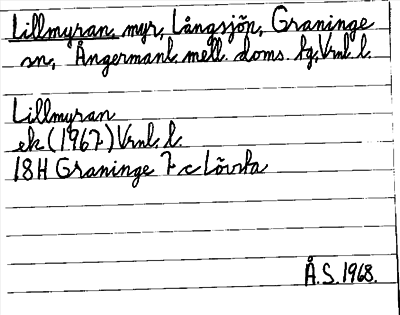 Lillmyran, myr, Långsjön, Graninge
sn, Ångermanl. mell. doms. hg, Vrnl. l.
Lillmyran
ek (1967) Vrnl. l.
18H Graninge 7 c Lövrta
Å.S. 1968.